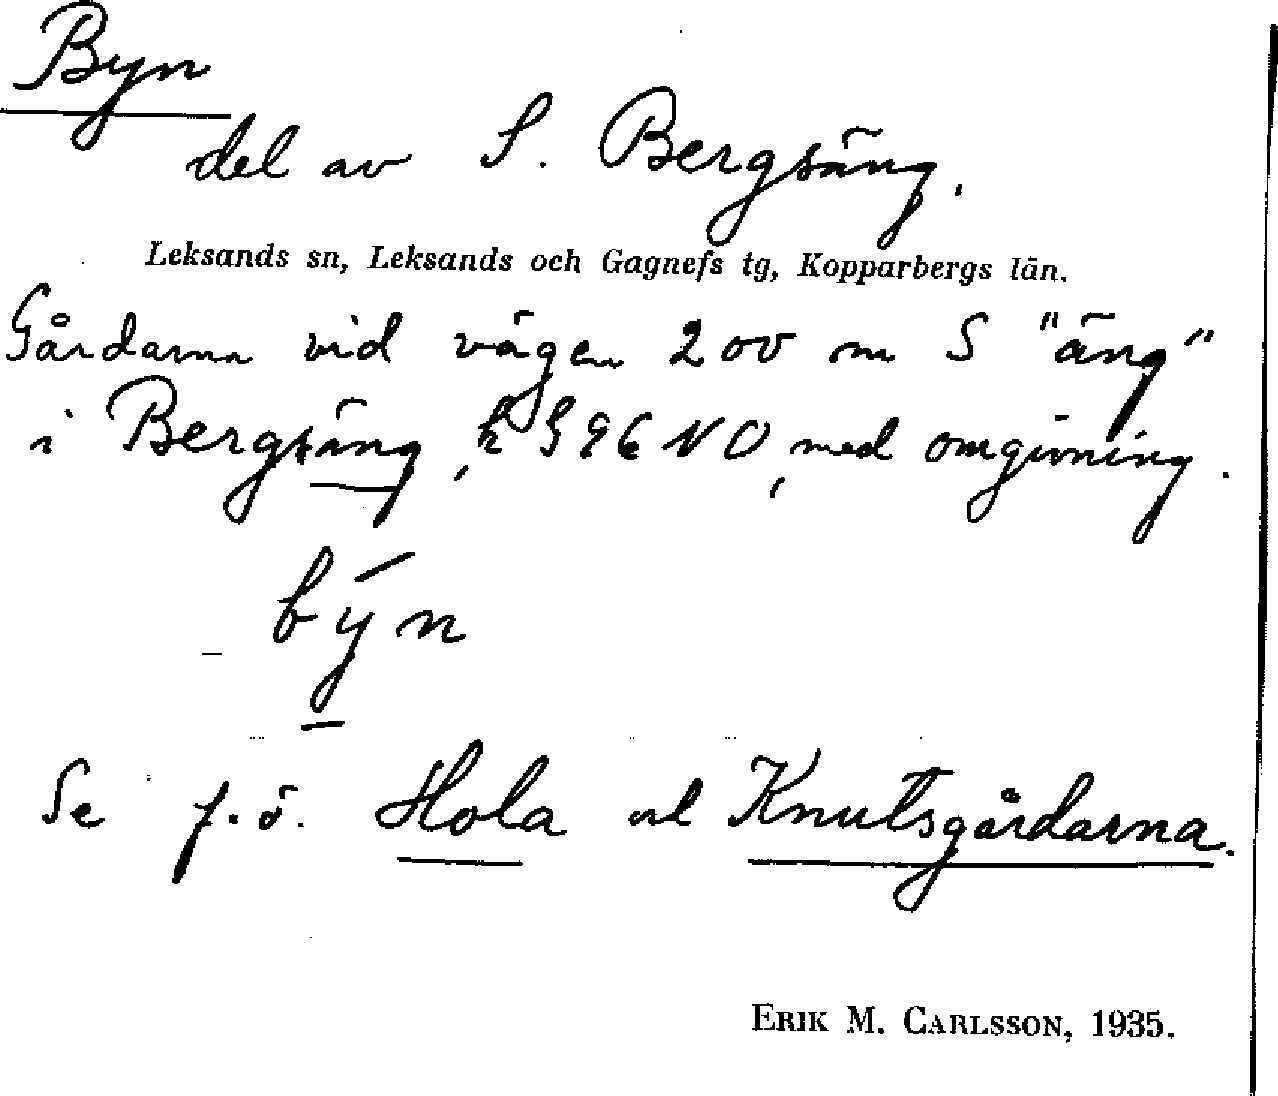 Byn
del av S. Bergsäng.
Leksands sn, Leksands och Gagnefs tg, Kopparbergs län.
Gårdarna vid vägen 200 m S "äng"
i Bergsäng, k 596 NO, med omgivning.
býn
Se f. ö. Hola och Knutsgårdarna.
ERIK M. CARLSSON, 1935.